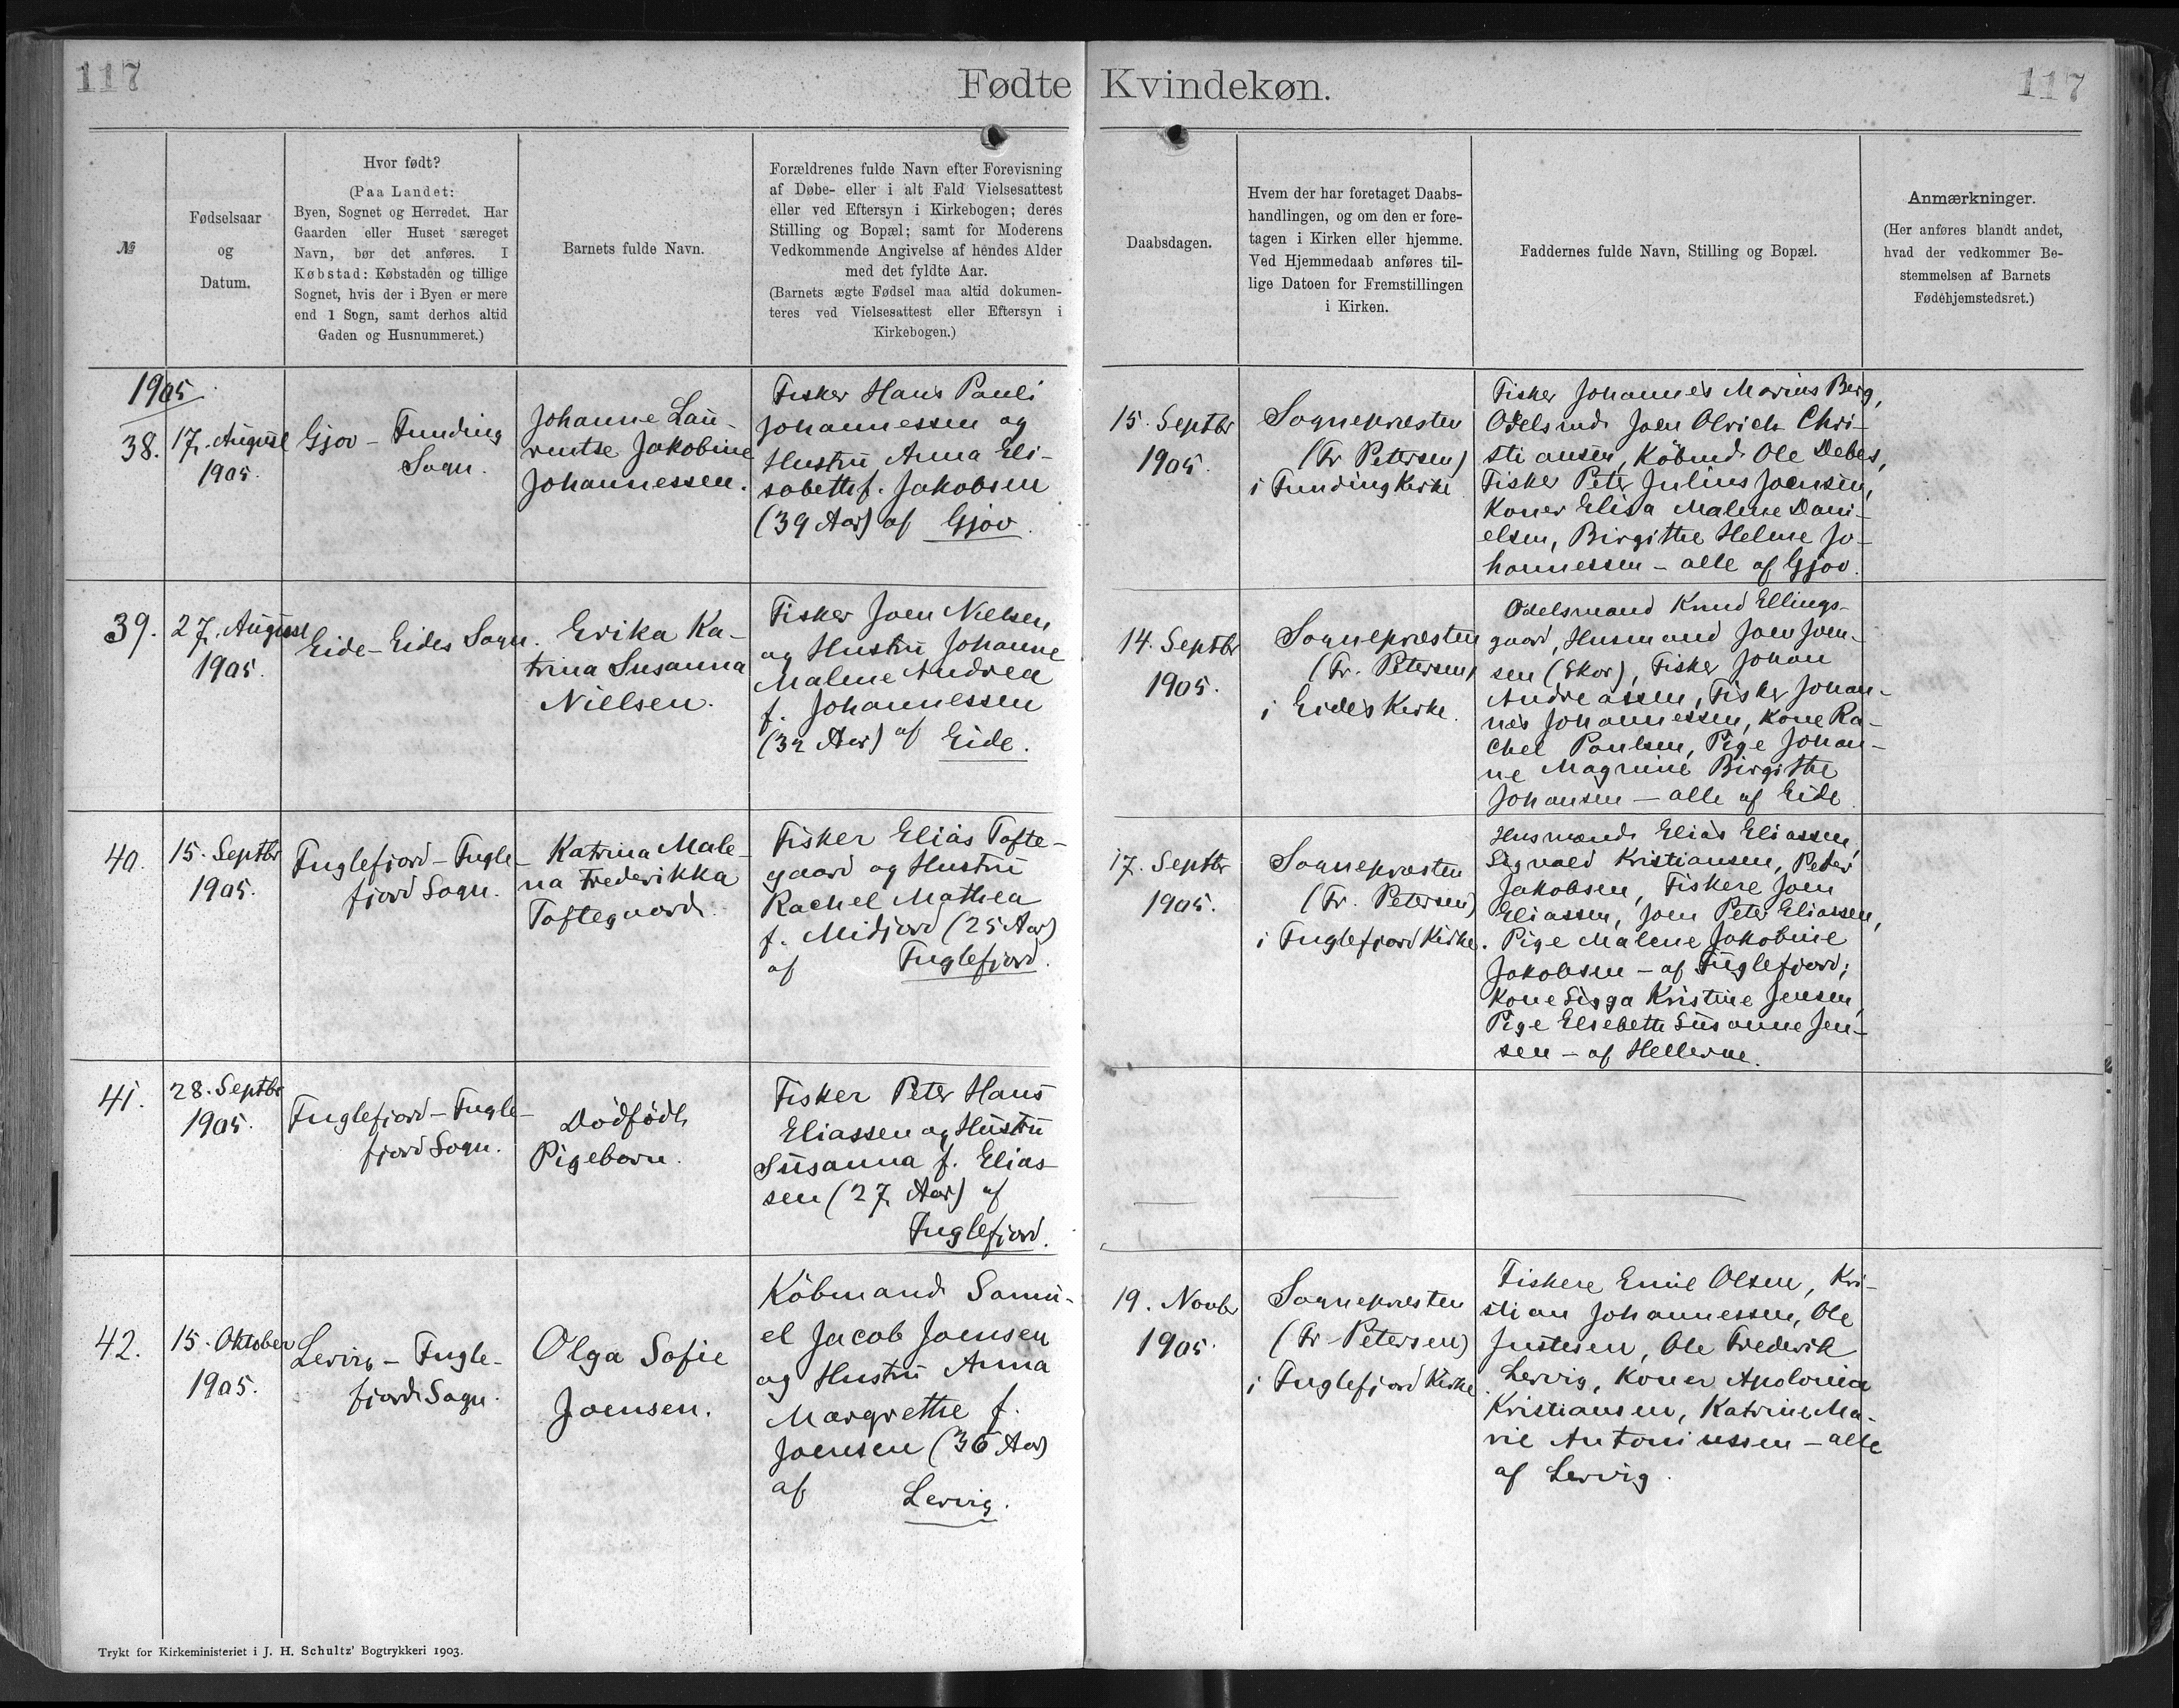 117
Fødte Kvindekøn.
117
№
Fødselsaar
og
Datum.
Hvor født?
(Paa Landet:
Byen, Sognet og Herredet. Har
Gaarden eller Huset særeget
Navn, bør det anføres. I
Købstad: Købstaden og tillige
Sognet, hvis der i Byen er mere
end 1 Sogn, samt derhos altid
Gaden og Husnummeret.)
Barnets fulde Navn.
Forældrenes fulde Navn efter Forevisning
af Døbe- eller i alt Fald Vielsesattest
eller ved Eftersyn i Kirkebogen; deres
Stilling og Bopæl; samt for Moderens
Vedkommende Angivelse af hendes Alder
med det fyldte Aar.
(Barnets ægte Fødsel maa altid dokumen-
teres ved Vielsesattest eller Eftersyn i
Kirkebogen.)
Daabsdagen.
Hvem der har foretaget Daabs-
handlingen, og om den er fore-
tagen i Kirken eller hjemme.
Ved Hjemmedaab anføres til-
lige Datoen for Fremstillingen
i Kirken.
Faddernes fulde Navn, Stilling og Bopæl.
Anmærkninger.
(Her anføres blandt andet,
hvad der vedkommer Be-
stemmelsen af Barnets
Fødehjemstedsret.)
1905
38.
17. August
1905.
Gjov - Funding
Sogn.
Johanne Lau-
rentse Jakobine
Johannessen.
Fisker Hans Pauli
Johannessen og
Hustru Anna Eli-
sabeth f. Jakobsen
(39 Aar) af Gjov.
15. Septbr
1905.
Sognepræsten
(Fr Petersen)
i Funding Kirke
Fisker Johannes Marius Berg,
Odelsmd. Joen Olrich Chri-
stiansen, Købmd. Ole Debes,
Fisker Peter Julius Joensen,
Koner Elisa Malene Dani-
elsen, Birgithe Helene Jo-
hannessen - alle af Gjov.
39.
27. August
1905.
Eide - Eides Sogn.
Erika Ka-
trina Susanna
Nielsen.
Fisker Joen Nielsen
og Hustru Johanne
Malene Andrea
f. Johannessen
(32 Aar) af Eide.
14. Septbr
1905.
Sognepræsten
(Fr. Petersen)
i Eides Kirke.
Odelsmand Knud Ellings-
gaard, Husmand Joen Joen-
sen (Skor), Fisker Johan
Andreassen, Fisker Johan-
nes Johannessen, Kone Ra-
chel Poulsen, Pige Johan-
ne Magnine Birgithe
Johansen - alle af Eide
40.
15. Septbr
1905.
Fuglefjord - Fugle-
fjord Sogn.
Katrina Male-
na Frederikka
Toftegaard.
Fisker Elias Tofte-
gaard og Hustru
Rachel Mathea
f. Midjord (25 Aar)
af Fuglefjord.
17. Septbr
1905.
Sognepræsten
(Fr. Petersen)
i Fuglefjord Kirke.
Husmænd Elias Eliassen,
Sigvald Kristiansen, Peder
Jakobsen, Fiskere Joen
Eliassen, Joen Peter Eliassen,
Pige Malene Jakobine
Jakobsen - af Fuglefjord;
Kone Sigga Kristine Jensen,
Pige Elsebeth Susanne Jen-
sen - af Hellerne.
41.
28. Septbr
1905.
Fuglefjord - Fugle-
fjord Sogn.
Dødfødt
Pigebarn.
Fisker Peter Hans
Eliassen og Hustru
Susanna f. Elias-
sen (27 Aar) af
Fuglefjord.
42.
15. Oktober
1905.
Lervig - Fugle-
fjord Sogn.
Olga Sofie
Joensen.
Købmand Samu-
el Jacob Joensen
og Hustru Anna
Margrethe f.
Joensen (36 Aar)
af Lervig.
19. Novbr
1905.
Sognepræsten
(Fr Petersen)
i Fuglefjord Kirke.
Fiskere Emil Olsen, Kri-
stian Johannessen, Ole
Justesen, Ole Frederik
Lervig, Koner Apolonia
Kristiansen, Katrine Ma-
rie Antoniussen - alle
af Lervig.
Trykt for Kirkeministeriet i J. H. Schultz' Bogtrykkeri 1903.